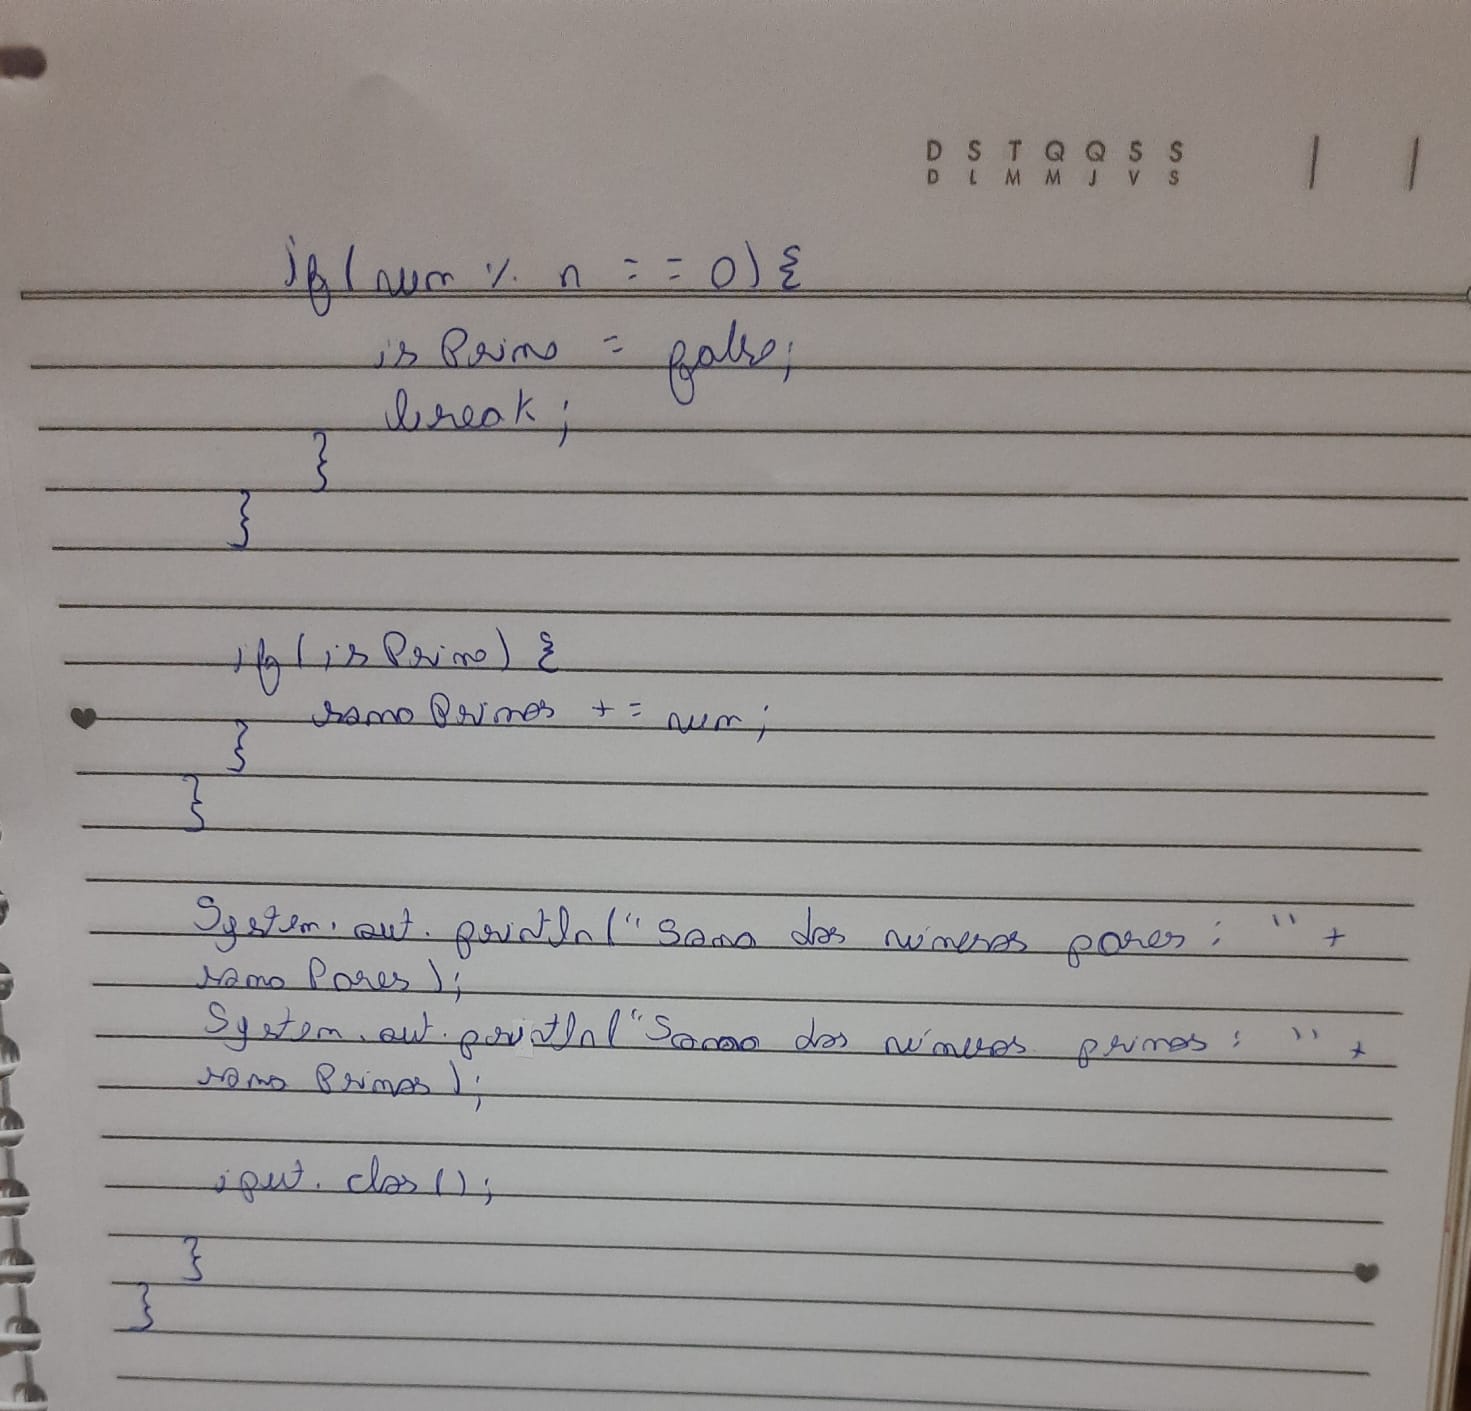 D S T Q Q S S
D L M M J V S
if (num % n == 0) {
isPrimo = false;
break;
}
}
if (isPrimo) {
somaPrimos += num;
}
}
System.out.println("Soma dos números pares: " +
somaPares);
System.out.println("Soma dos números primos: " +
somaPrimos);
iput.clos();
}
}